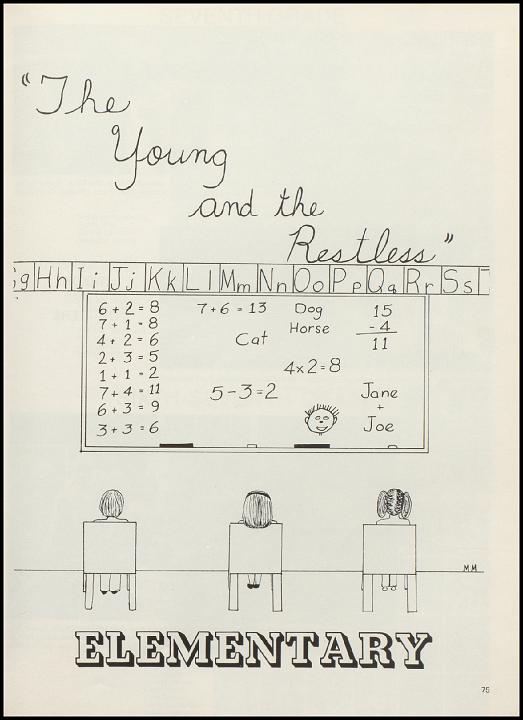 "The
Young
and the
Restless"
g Hh Ii Jj Kk Ll Mm Nn Oo Pp Qq Rr Ss T
6 + 2 = 8
7 + 1 = 8
4 + 2 = 6
2 + 3 = 5
1 + 1 = 2
7 + 4 = 11
6 + 3 = 9
3 + 3 = 6
7 + 6 = 13
Cat
5 - 3 = 2
Dog
Horse
4 x 2 = 8
15
- 4
11
Jane
+
Joe
MM
ELEMENTARY
75